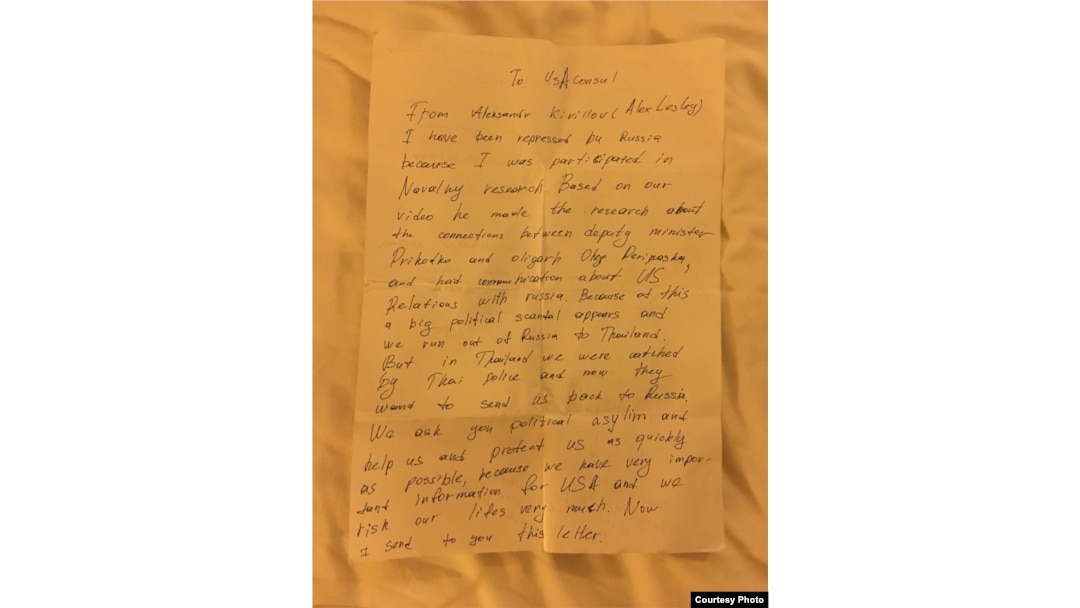 To UsA consul
From Aleksandr Kirillov (Alex Lesley)
I have been repressed by Russia
because I was participated in
Navalny research Based on our
video he made the research about
the connections between deputy minister
Prihodko and oligarh Oleg Deripaska,
and haid communication about US
Relations with russia. Because of this
a big political scandal appears and
we run out of Russia to Thailand.
But in Thailand we were catched
by Thai police and now they
wand to send us back to Russia.
We ask you political asylim and
help us and protect us as quickly
as possible, because we have very impor-
tand information for USA and we
risk our lifes very much. Now
I send to you this letter.
Courtesy Photo